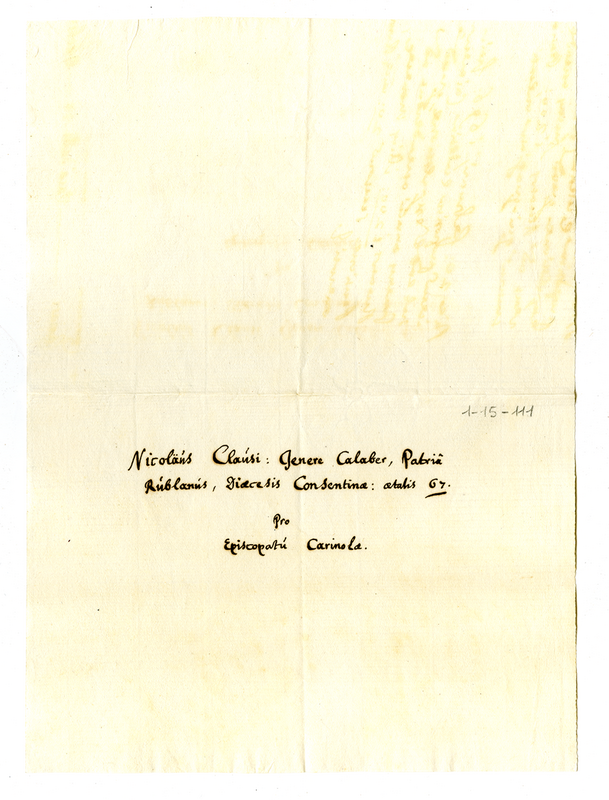 1-15-111
Nicolaús Claúsi: Genere Calaber, Patriâ
Rúblanús, Diæcesis Consentinæ: ætatis 67.
Pro
Episcopatú Carinolæ.